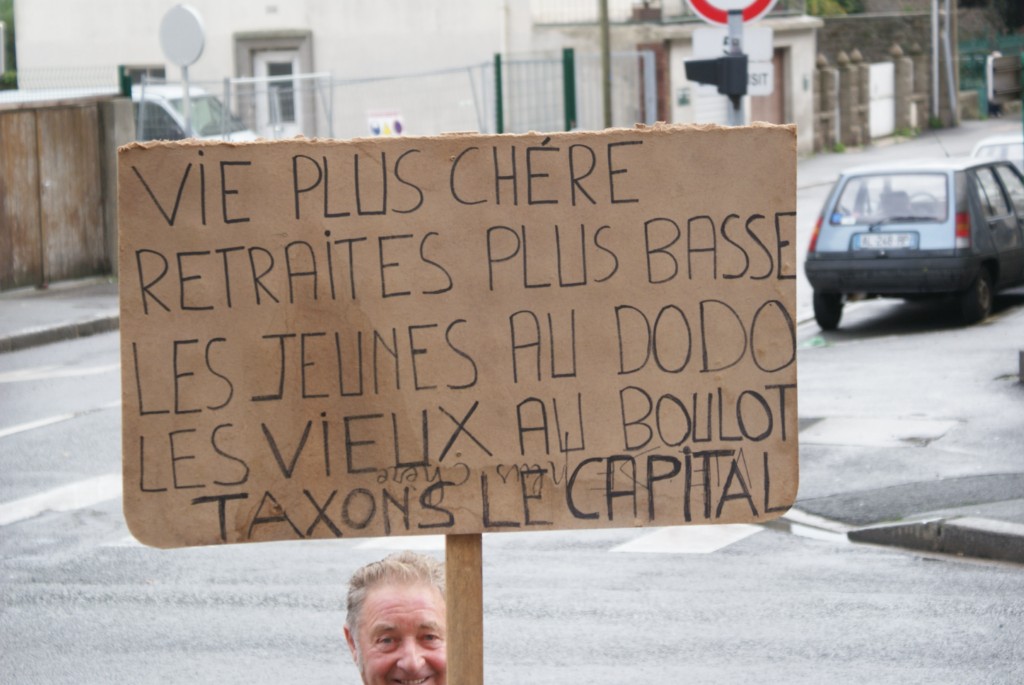 ViE PLUS CHÉRE
RETRAiTES PLUS BASSE
LES JEUNES AU DODO
LES ViEUX AU BOULOT
TAXONS LE CAPiTAL